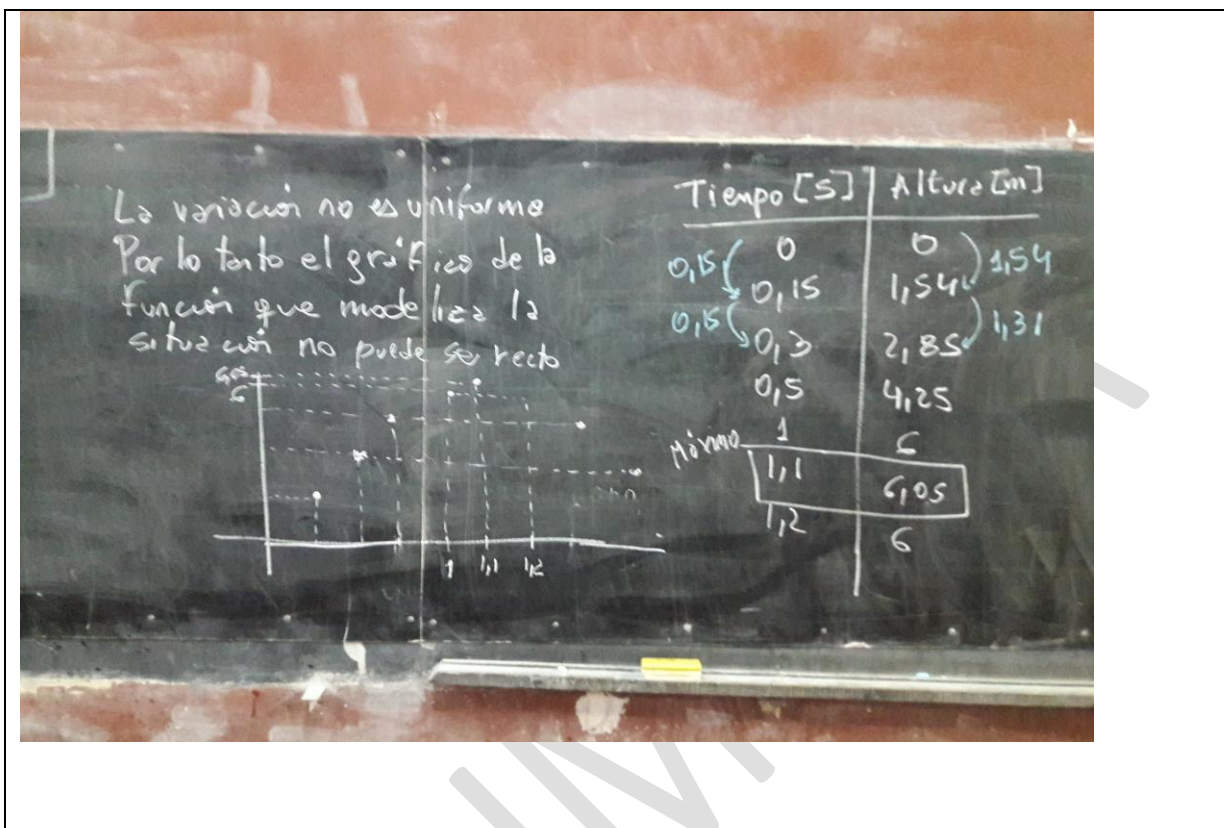 La variación no es uniforme
Por lo tanto el gráfico de la
función que modeliza la
situación no puede ser recto
6,05
6
1 1,1 1,2
Tiempo [s] Altura [m]
0 0
0,15 1,54
0,15 1,54
0,15 1,31
0,3 2,85
0,5 4,25
1 6
Máximo
1,1 6,05
1,2 6